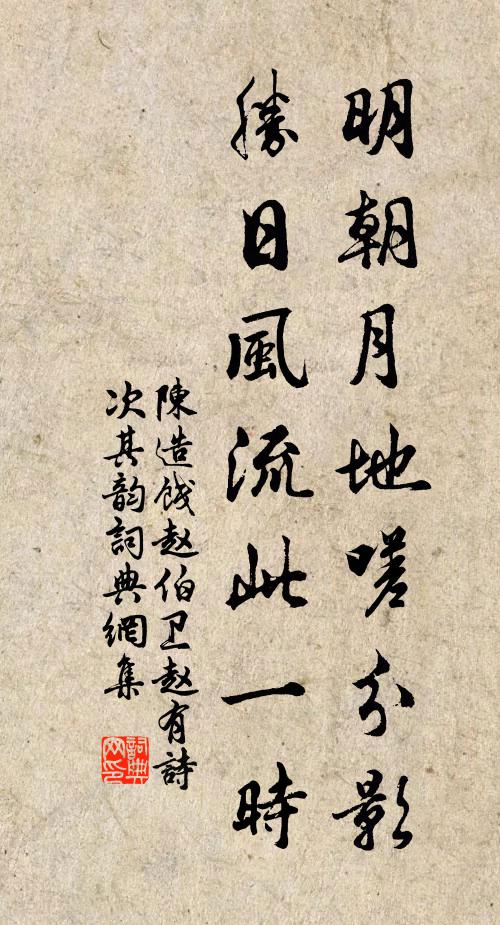 明朝月地嗟分影
勝日風流此一時
陳造餞赵伯卫赵有詩
次其韵詞典網集
詞典网印